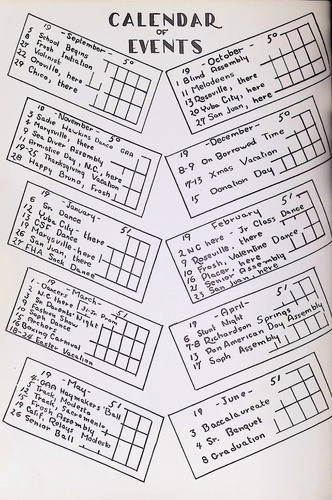 CALENDAR
OF
EVENTS
19 - September - 50
5 School Begins
8 Frosh Initiation
27 Violinist
22 Oroville, here
29 Chico, here
19 - October - 50
1 Blind Assembly
11 Melodeens
13 Roseville, there
20 Yuba City, here
27 San Juan, here
19 - November - 50
3 Sadie Hawkins Dance GAA
4 Marysville there
9 Sea Diver Assembly
9 Armistice Day, N.C., here
19-25 Thanksgiving Vacation
28 Happy Bruno, Frosh
19 - December - 50
8-9 On Borrowed Time
17-13 Xmas Vacation
15 Donation Day
19 - January - 51
6 Sr. Dance
12 Yuba City - there
13 CSF Dance
19 Marysville - here
26 San Juan, there
27 FHA Sock Dance
19 February 51
2 N.C. here - Jr. Class Dance
9 Roseville, there
10 Frosh, Valentine Dance
16 Placer, here
Senior Assembly
23 San Juan, here
19 - March - 51
1 Dancers
2 N.C. there
Jr.-Sr. Prom
Sr. Parents' Night
Fashion Show
Soph Dance
Archers
16 Boxing Carnival
18-26 Easter Vacation
19 - April - 51
6 Slunt Night
8 Richardson Springs
13 Pan American Day Assembly
17 Soph Assembly
19 - May - 51
4 GAA Haymakers Ball
Track, Modesto
Track, Sacramento
Frosh Assembly
19 Calif. Relays Modesto
26 Senior Ball
19 - June - 51
3 Baccalaureate
4 Sr. Banquet
8 Graduation